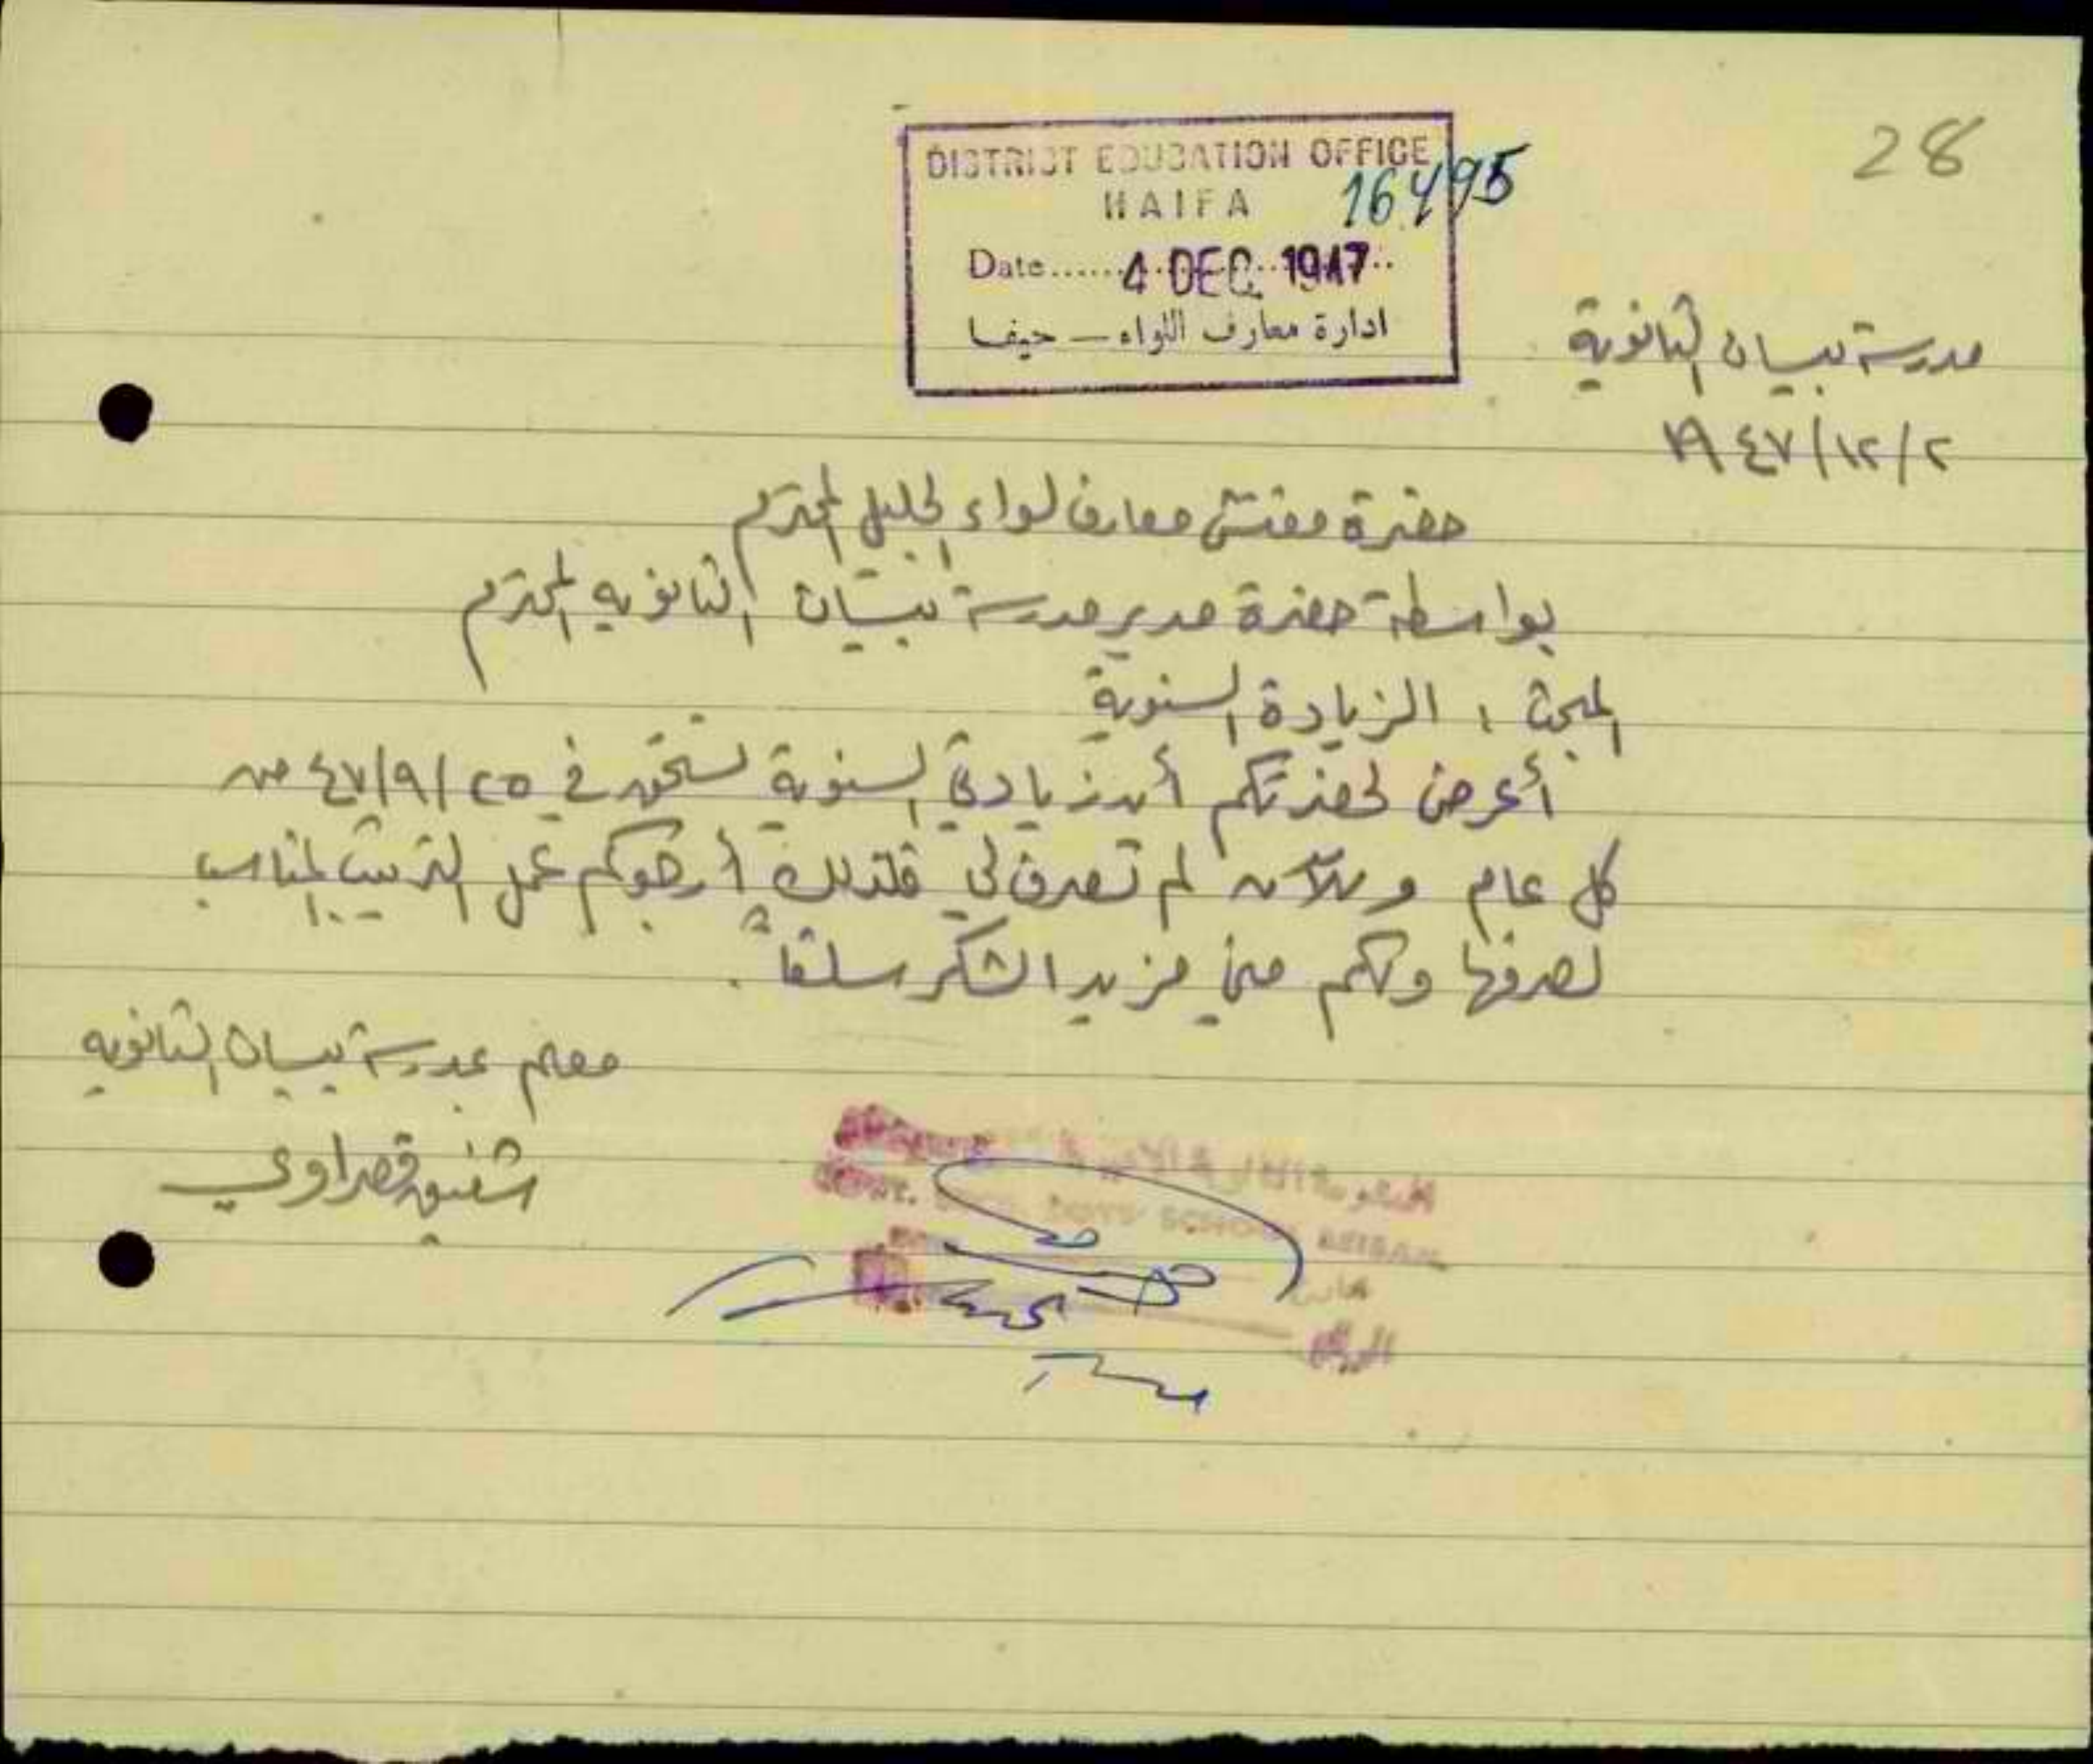 28
DISTRICT EDUCATION OFFICE
HAIFA 16495
Date...... 4 DEC 1947
ادارة معارف اللواء — حيفا
مدرسة بيسان الثانوية
٢/١٢/١٩٤٧
حضرة مفتش معارف لواء الجليل المحترم
بواسطة حضرة مدير مدرسة بيسان الثانويه المحترم
المبحث : الزيادة السنوية
أعرض لحضرتكم أن زيادتي السنوية تستحق في ٢٥/٩/٤٧ من
كل عام وللآن لم تصرف لي فلذلك أرجوكم عمل الترتيب المناسب
لصرفها ولكم مني مزيد الشكر سلفاً .
معلم بمدرسة بيسان الثانويه
شفيق قصراوي
BOYS' SCHOOL BEISAN